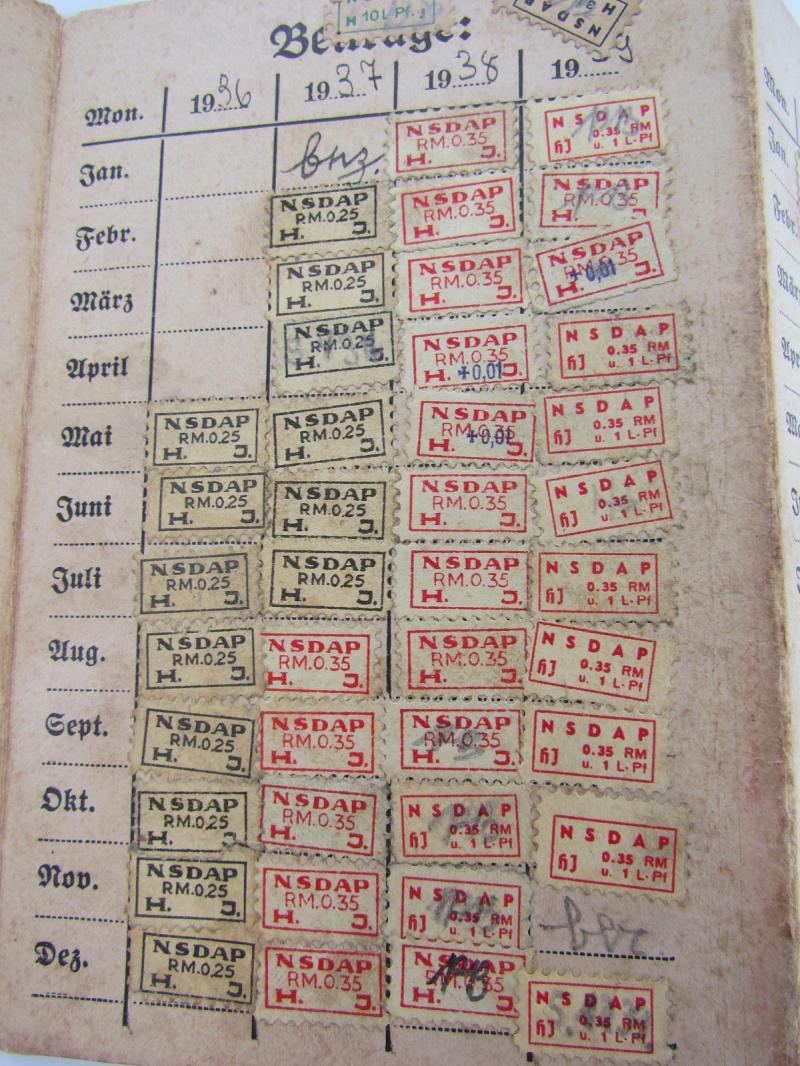 H 10 L-Pf.
NSDAP
Beiträge:
Mon. 1936 1937 1938 19
Jan. bez. NSDAP RM.0.35 H. J. NSDAP HJ 0.35 RM u. 1 L-Pf
Febr. NSDAP RM.0.25 H. J. NSDAP RM.0.35 H. J. NSDAP RM.0.35
März NSDAP RM.0.25 H. J. NSDAP RM.0.35 H. J. NSDAP RM.0.35 +0,01 H. J.
April NSDAP RM.0.25 H. J. NSDAP RM.0.35 H. +0,01 J. NSDAP HJ 0.35 RM u. 1 L-Pf
Mai NSDAP RM.0.25 H. J. NSDAP RM.0.25 H. J. NSDAP RM.0.35 +0,01 H. J. NSDAP HJ 0.35 RM u. 1 L-Pf
Juni NSDAP RM.0.25 H. J. NSDAP RM.0.25 H. J. NSDAP RM.0.35 H. J. NSDAP HJ 0.35 RM u. 1 L-Pf
Juli NSDAP RM.0.25 H. J. NSDAP RM.0.25 H. J. NSDAP RM.0.35 H. J. NSDAP HJ 0.35 RM u. 1 L-Pf
Aug. NSDAP RM.0.25 H. J. NSDAP RM.0.35 H. J. NSDAP RM.0.35 H. J. NSDAP HJ 0.35 RM u. 1 L-Pf
Sept. NSDAP RM.0.25 H. J. NSDAP RM.0.35 H. J. NSDAP RM.0.35 H. J. NSDAP HJ 0.35 RM u. 1 L-Pf
Okt. NSDAP RM.0.25 H. J. NSDAP RM.0.35 H. J. NSDAP HJ 0.35 RM u. 1 L-Pf NSDAP HJ 0.35 RM u. 1 L-Pf
Nov. NSDAP RM.0.25 H. J. NSDAP RM.0.35 H. J. NSDAP HJ 0.35 RM u. 1 L-Pf bez.
Dez. NSDAP RM.0.25 H. J. NSDAP RM.0.35 H. J. NSDAP RM.0.35 H. J. NSDAP HJ 0.35 RM u. 1 L-Pf